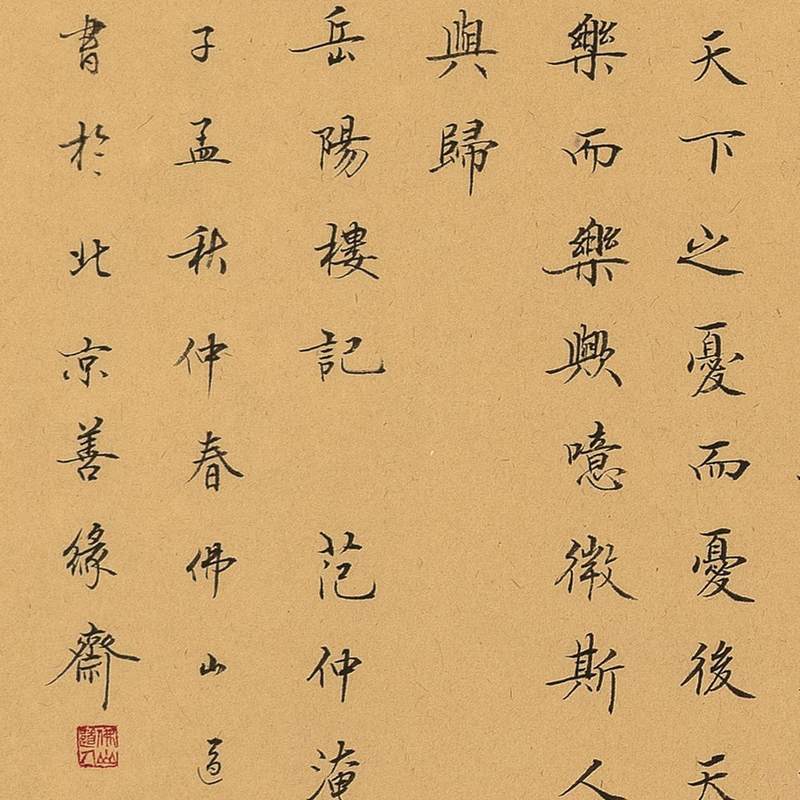 天下之憂而憂後天
樂而樂歟噫微斯人
與歸
岳陽樓記 范仲淹
子孟秋仲春佛山道
書於北京善緣齋
佛山道人